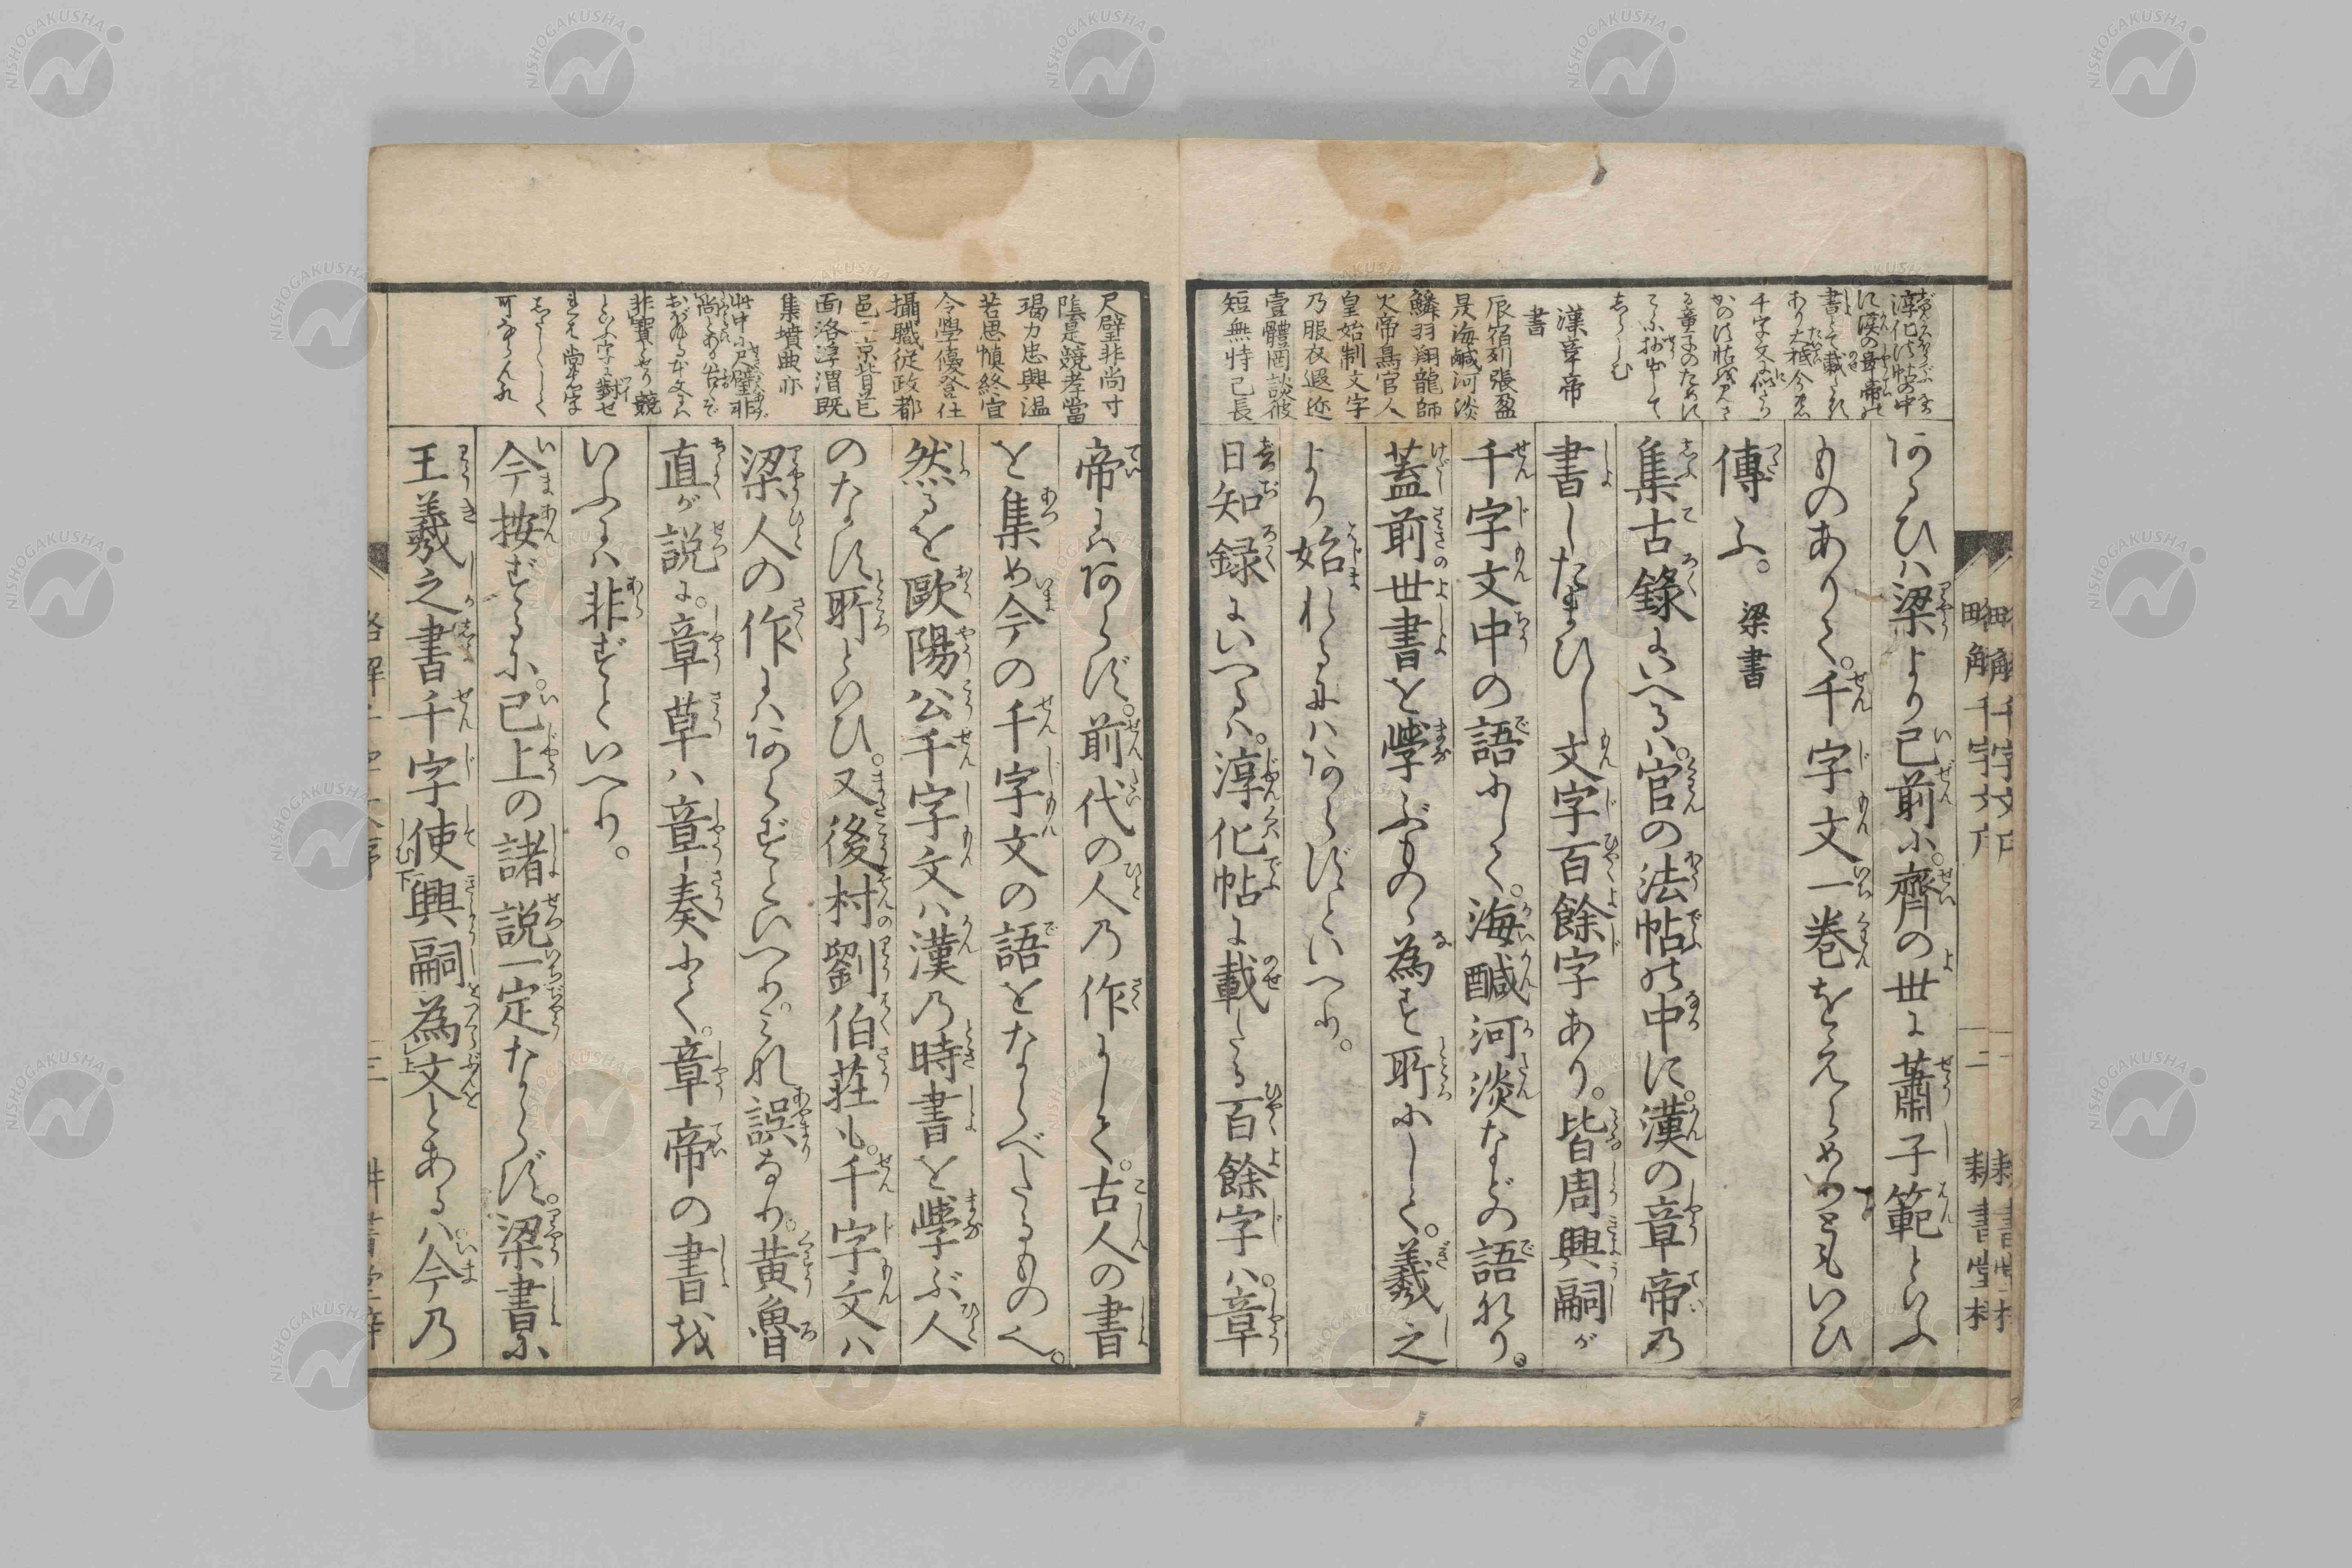 淳化法帖の中
に漢の章帝の
書とて載たる
あり大抵今の
千字文に似たり
漢章帝
書
辰宿列張盈
昃海鹹河淡
鱗羽翔龍師
火帝鳥官人
皇始制文字
乃服衣遐迩
壹體罔談彼
短無恃己長
あるひハ梁より已前に。齊の世に蕭子範といふ
ものありて。千字文一卷をえらめりともいひ
傳ふ。梁書
集古錄にいへるハ。官の法帖の中に。漢の章帝乃
書したまひし文字百餘字あり。皆周興嗣が
千字文中の語にして。海鹹河淡などの語なり。
蓋前世書を学ぶもの〻為す所にして。羲之
より始れるにハあらずといへり。
日知録にいへるハ。淳化帖に載たる百餘字ハ。章
尺璧非尚寸
陰是競孝當
竭力忠興温
若思慎終宜
令學優登仕
攝職從政都
邑二京背芒
面洛浮渭既
集墳典亦
此中に尺璧非
非寶なり競
帝にハあらず。前代の人乃作にして。古人の書
を集め今の千字文の語をならべたるものぞ。
然るを歐陽公千字文ハ漢乃時書を学ぶ人
のなす所といひ。又後村劉伯荘も。千字文ハ
梁人の作にハあらずといへり。みな誤なり。黄魯
直が説に。章草ハ章奏にて。章帝の書を
いふにハ非ずといへり。
今按ずるに。已上の諸説一定ならず。梁書に
王羲之書千字使興嗣為文とあるハ。今乃
略解千字文序
二
耕書堂梓